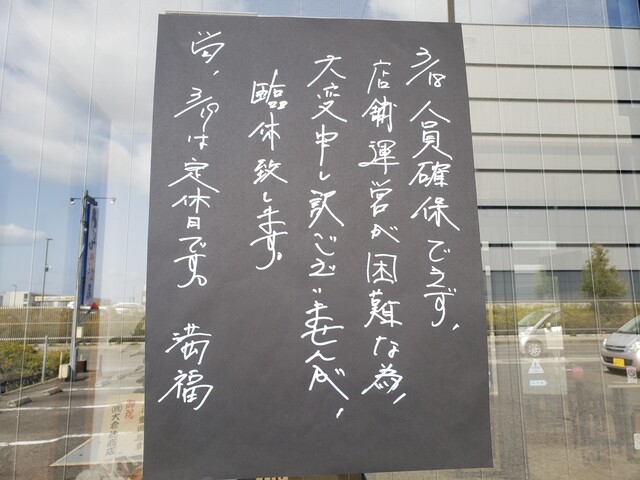 3/18 人員確保できず、
店舗運営が困難な為、
大変申し訳ございませんが、
臨休致します。
尚、3/19は定休日です。 満福
御祝